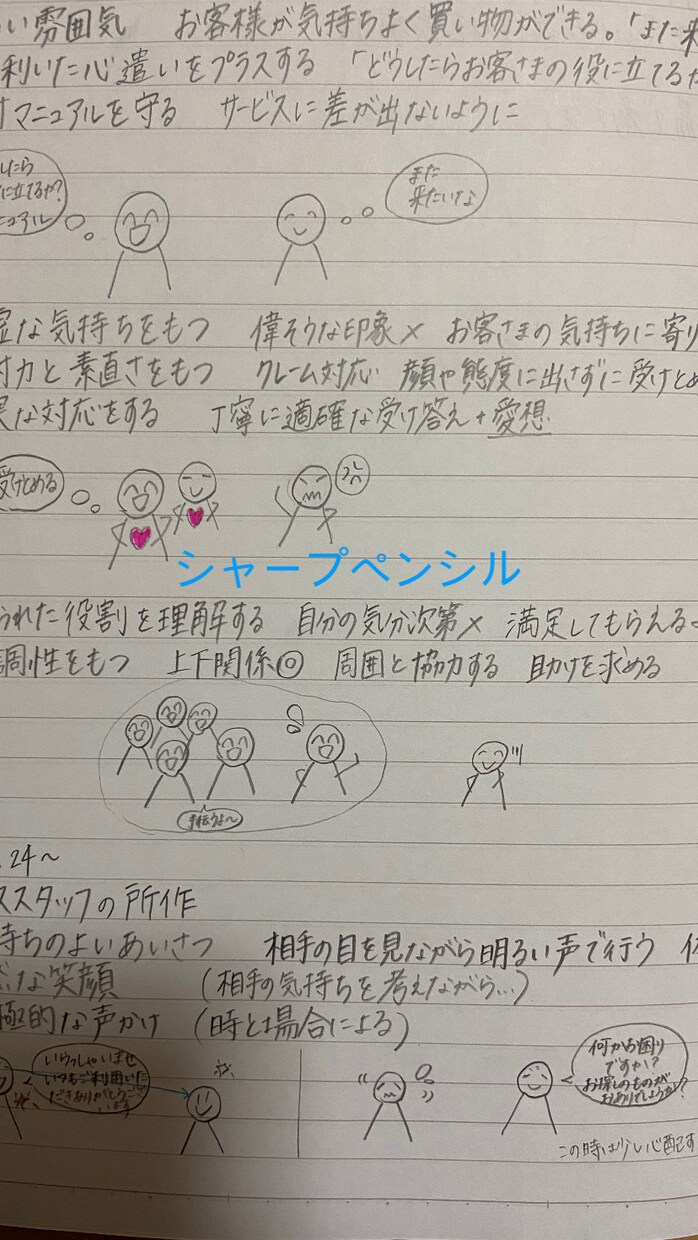 い雰囲気 お客様が気持ちよく買い物ができる。「また来
利いた心遣いをプラスする 「どうしたらお客さまの役に立てるか
マニュアルを守る サービスに差が出ないように
したら
に立てるか?
ニュアル
また
来たいな
な気持ちをもつ 偉そうな印象× お客さまの気持ちに寄り
力と素直さをもつ クレーム対応 顔や態度に出さずに受けとめ
な対応をする 丁寧に適確な受け答え+愛想
受けとめる
シャープペンシル
られた役割を理解する 自分の気分次第× 満足してもらえるよ
調性をもつ 上下関係◎ 周囲と協力する 助けを求める
手伝うよ〜
.24〜
ススタッフの所作
持ちのよいあいさつ 相手の目を見ながら明るい声で行う
な笑顔 (相手の気持ちを考えながら…)
極的な声かけ (時と場合による)
いらっしゃいませ
いつもご利用いた
だきありがとうござ
います
何かお困り
ですか?
お探しのものが
おありでしょうか?
この時は少し心配す